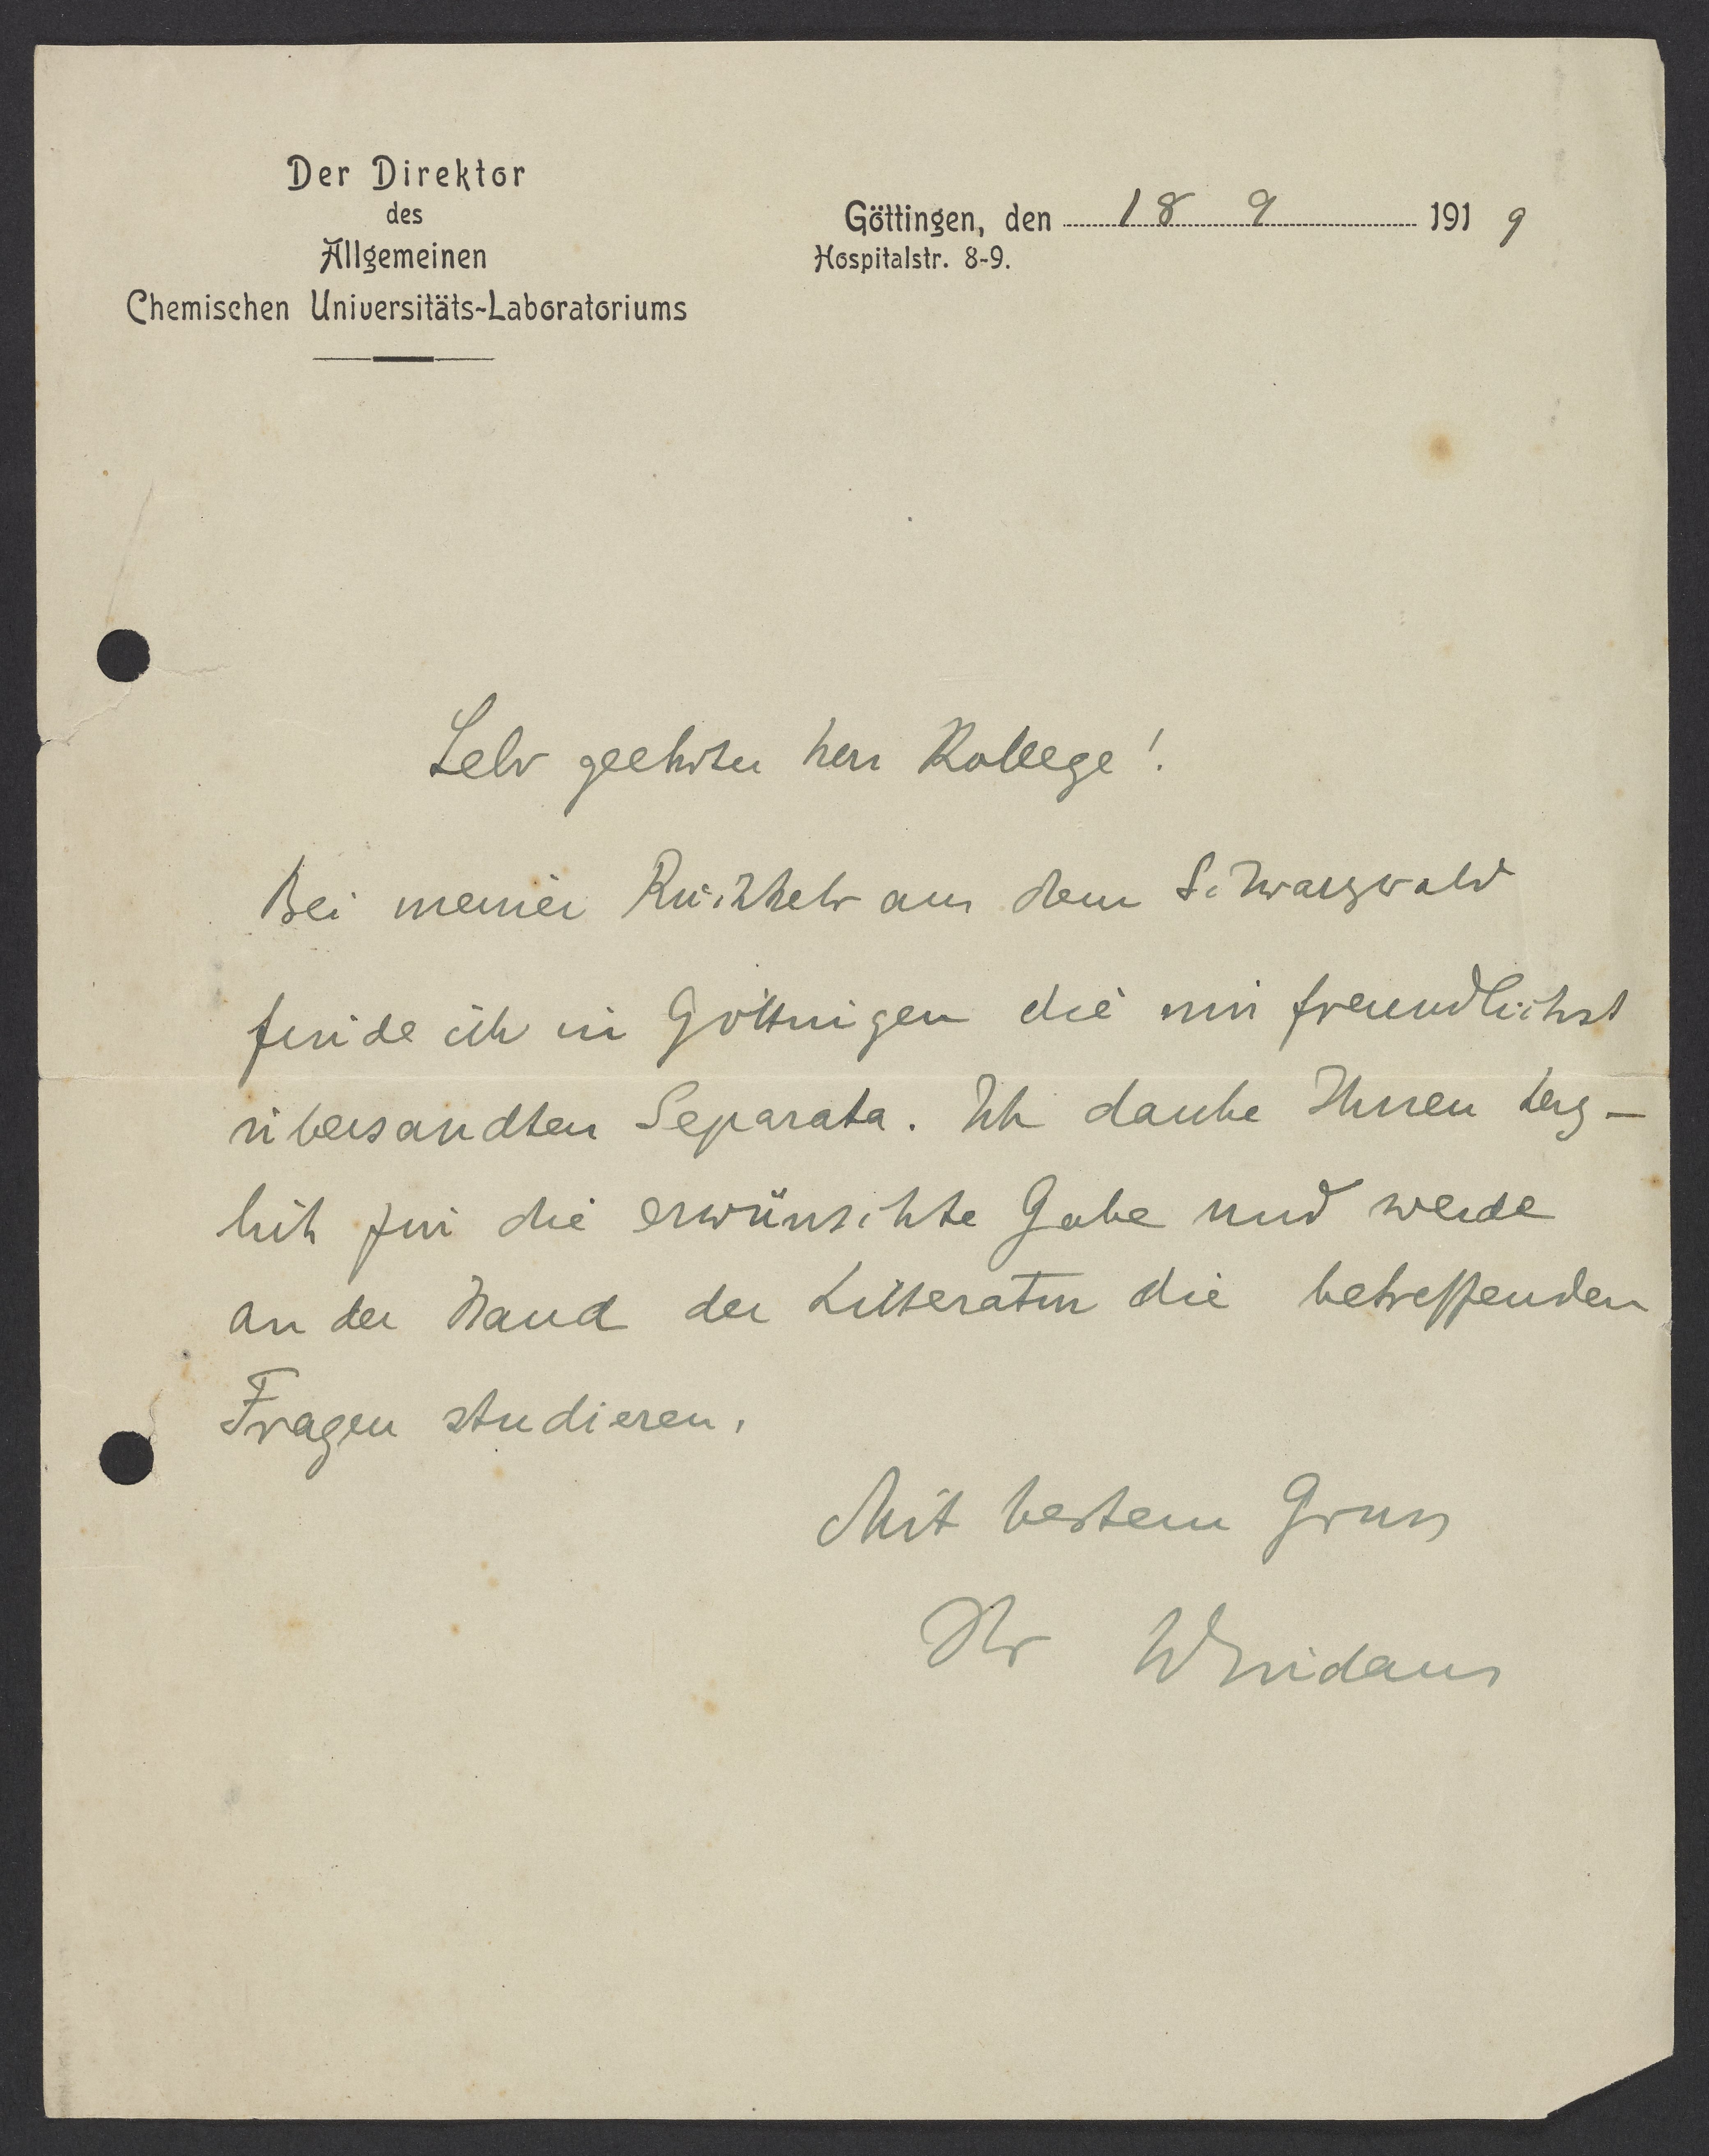 Der Direktor
des
Allgemeinen
Chemischen Universitäts-Laboratoriums
Göttingen, den 18 9 1919
Hospitalstr. 8-9.
Sehr geehrter Herr Kollege!
Bei meiner Rückkehr aus dem Schwarzwald
finde ich in Göttingen die mir freundlichst
übersandten Separata. Ich danke Ihnen herz-
lich für die erwünschte Gabe und werde
an der Hand der Litteratur die betreffenden
Fragen studieren.
Mit bestem Gruss
Ihr Windaus